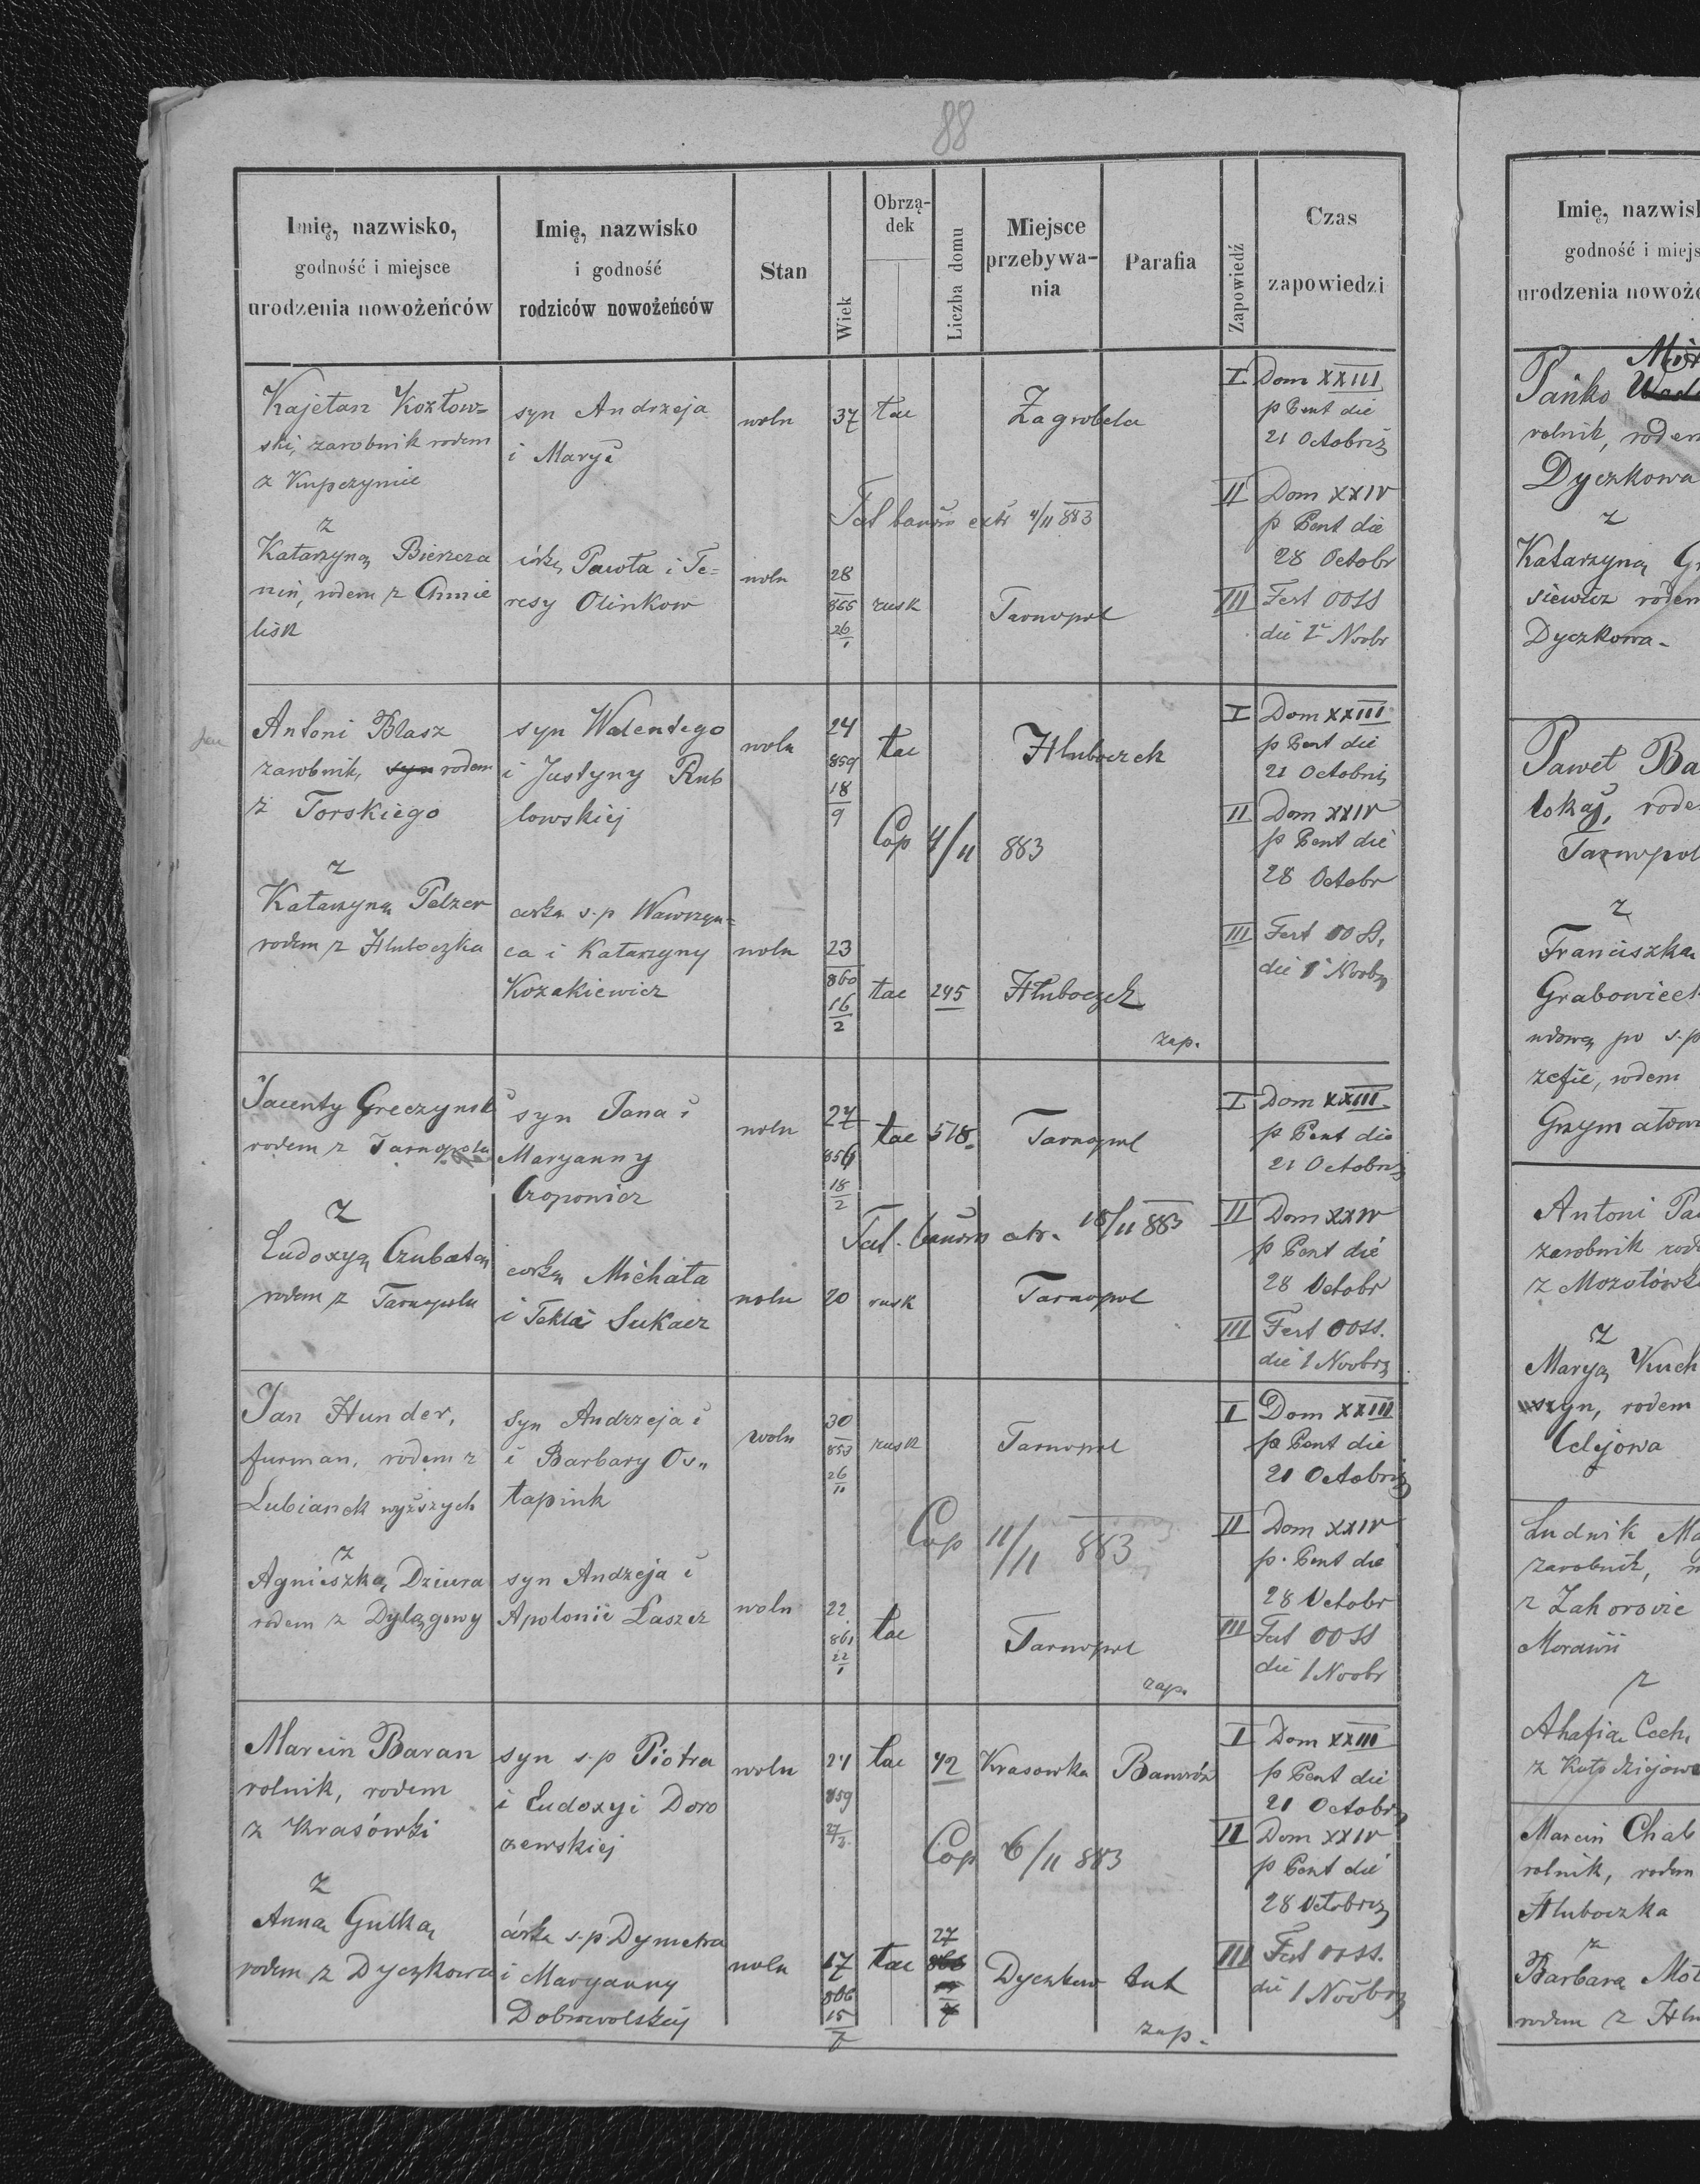 88
Imię, nazwisko,
godność i miejsce
urodzenia nowożeńców
Imię, nazwisko
i godność
rodziców nowożeńców
Stan
Wiek
Obrzą-
dek
Liczba domu
Miejsce
przebywa-
nia
Parafia
Zapowiedź
Czas
zapowiedzi
Kajetan Kozłow=
ski, zarobnik rodem
z Kupczyniec
z
Katarzyną Bierzcza
nin, rodem z Chmie
lisk
syn Andrzeja
i Maryi
córką Pawła i Te=
resy Olinkow
woln
woln
37
28
866
26
1
łac
rusk
Zagrobela
Tarnopol
4/11 883
I Dom XXIII
p Pent die
21 Octobris
II Dom XXIV
p Pent die
28 Octobr
III Fest OOSS
die 1 Novbr
Antoni Blasz
zarobnik, syn rodem
z Torskiego
z
Katarzyną Pelzer
rodem z Hłuboczka
syn Walentego
i Justyny Rub
lowskiej
córka s.p Wawrzyn=
ca i Katarzyny
Kozakiewicz
woln
woln
24
859
18
9
23
860
16
2
łac
łac
245
Hłuboczek
Cop 4/11 883
Hłuboczek
zap.
I Dom XXIII
p Pent die
21 Octobris
II Dom XXIV
p Pent die
28 Octobr
III Fest OOSS
die 1 Novbr
Jacenty Greczynski
rodem z Tarnopola
z
Eudoxyą Czubatą
rodem z Tarnopola
syn Jana i
Maryanny
Czopowicz
córką Michała
i Tekla Sukacz
woln
woln
27
856
18
2
20
łac
rusk
518.
Tarnopol
18/11 883
Tarnopol
I Dom XXIII
p Pent die
21 Octobris
II Dom XXIV
p Pent die
28 Octobr
III Fest OOSS.
die 1 Novbris
Jan Hunder,
furman, rodem z
Lubianek wyższych
z
Agnieszką Dziura
rodem z Dylągowy
syn Andrzeja i
i Barbary Os„
tapiuk
syn Andrzeja i
Apolonii Laszcz
woln
woln
30
853
26
11
22
861
22
1
rusk
łac
Tarnopol
Cop 11/11 883
Tarnopol
zap.
I Dom XXIII
p Pent die
21 Octobris
II Dom XXIV
p. Pent die
28 Octobr
III Fest OOSS
die 1 Novbr
Marcin Baran
rolnik, rodem
z Krasówki
z
Anną Gulką
rodem z Dyczkowa
syn s.p Piotra
i Eudoxyi Doro
szewskiej
córka s.p. Dymetra
i Maryanny
Dobrowolskiej
woln
woln
24
859
27
17
866
15
7
łac
łac
42
27
Krasowka
Cop 6/11 883
Dyczkow
tut
zap.
I Dom XXIII
p Pent die
21 Octobris
II Dom XXIV
p Pent die
28 Octobris
III Fest OOSS.
die 1 Novbris
Imię, nazwisk
godność i miejs
urodzenia nowoże
Pańko
rolnik, rodem
Dyczkowa
z
Katarzyną
siewicz rodem
Dyczkowa
Paweł Ba
lokaj, rode
Tarnopol
z
Franciszką
Grabowieck
wdową po s.p
zefie, rodem
Grzymałow
Antoni Pa
zarobnik rod
z Mozołówk
z
Maryą Kuch
szyn, rodem
Celejowa
Ludwik Ma
zarobnik,
z Zahorovic
Morawii
z
Ahafia Cech
z Kołodziejowe
Marcin Chab
rolnik, rodem
Hłuboczka
z
Barbara Moł
rodem z Hłu